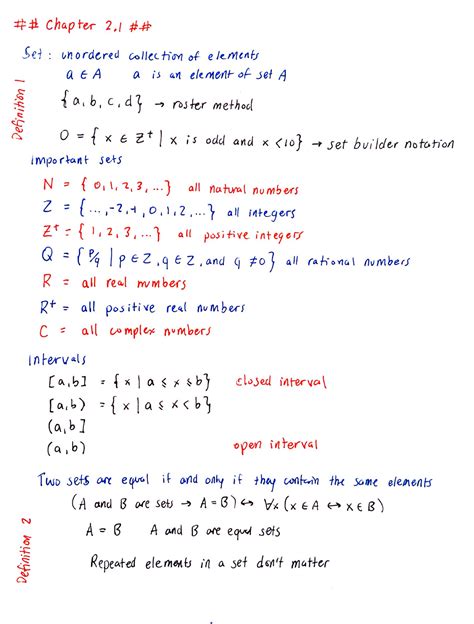 ## Chapter 2.1 ##
Definition 1
Set : unordered collection of elements
a ∈ A a is an element of set A
{a, b, c, d} → roster method
O = { x ∈ Z⁺ | x is odd and x <10} → set builder notation
important sets
N = { 0, 1, 2, 3, ...} all natural numbers
Z = { ..., -2, -1, 0, 1, 2, ... } all integers
Z⁺ = { 1, 2, 3, ... } all positive integers
Q = { p/q | p ∈ Z, q ∈ Z, and q ≠ 0 } all rational numbers
R = all real numbers
R⁺ = all positive real numbers
C = all complex numbers
Intervals
[a,b] = { x | a ≤ x ≤ b} closed interval
[a,b) = { x | a ≤ x < b}
(a,b]
(a,b) open interval
Definition 2
Two sets are equal if and only if they contain the same elements
(A and B are sets → A = B) ↔ ∀x (x ∈ A ↔ x ∈ B)
A = B A and B are equal sets
Repeated elements in a set don't matter